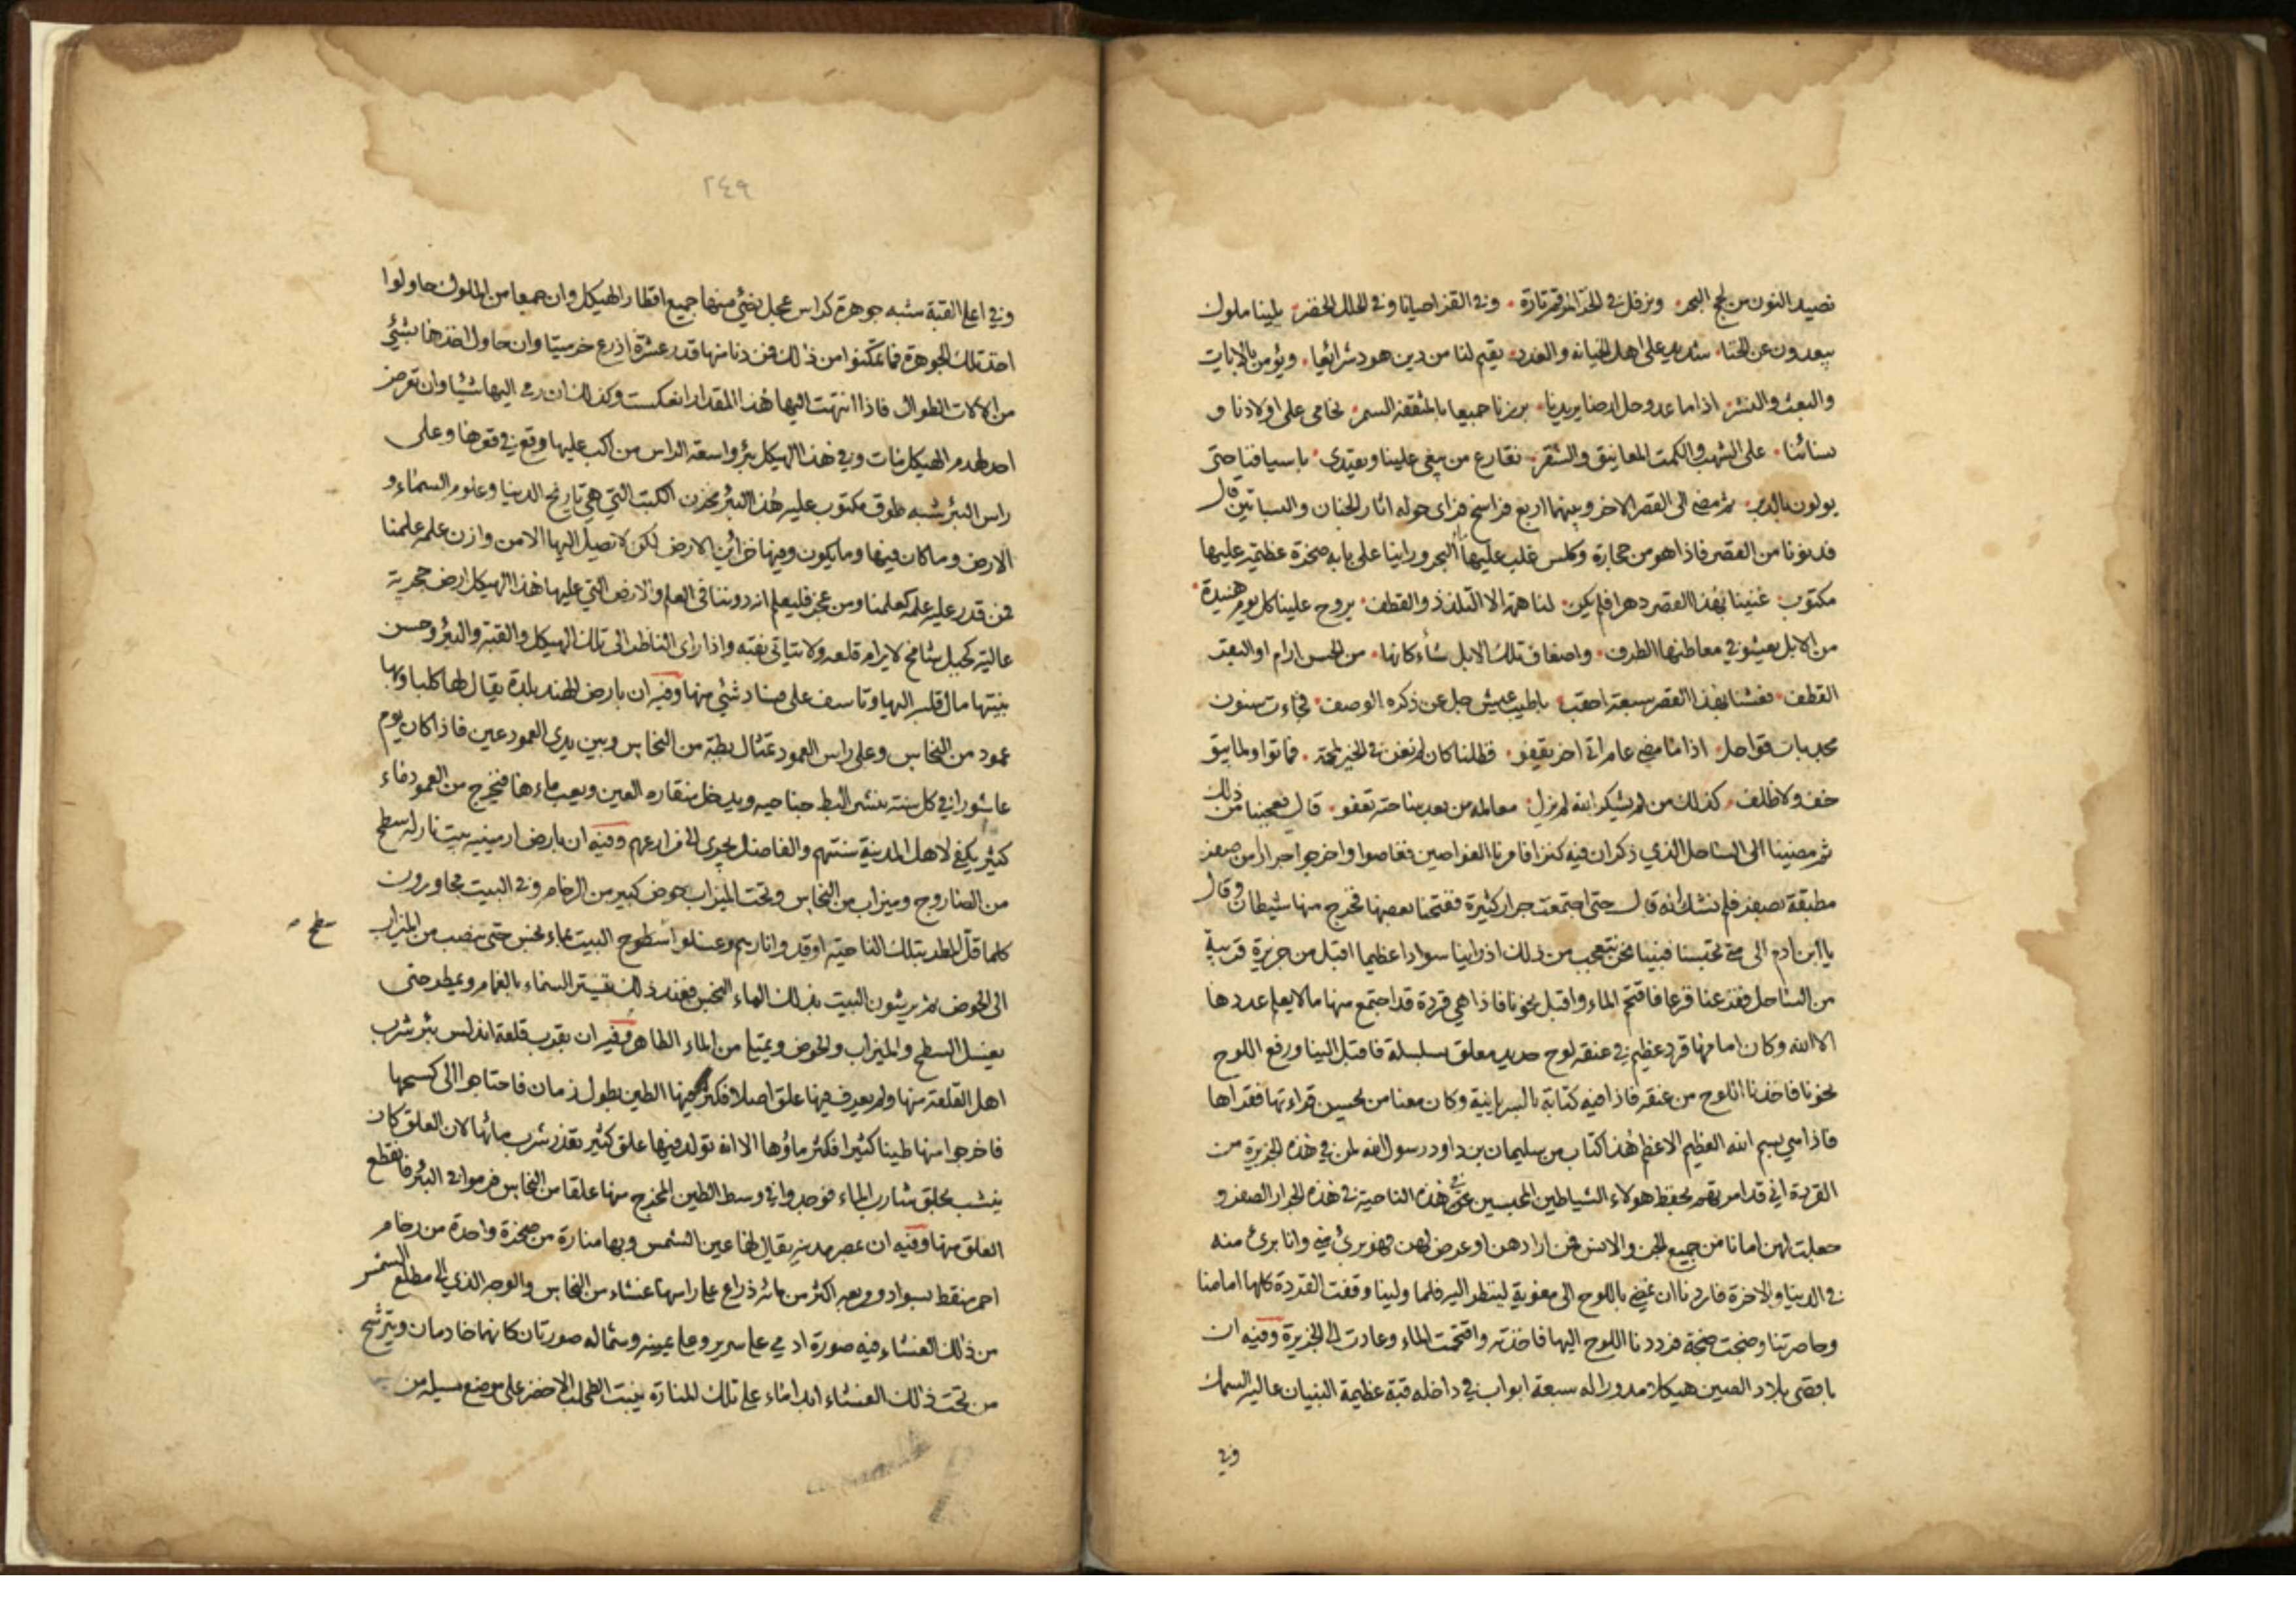 نصيد النون من لجج البحر ونرفل في الخز المرقم تارة وفي القز احيانا وفي الحلل الخضر يلينا ملوك
يبعدون عن الخنا شديد على اهل الخيانة والغدر يقيم لنا من دين هود شرائعا ويؤمن بالايات
والبعث والنشر اذا ما عدو حل ارضا يريدنا برزنا جميعا بالمثقفة السمر نحامى على اولادنا و
نسائنا على الشهب والكمت المعانيق والشقر نقارع من يبغى علينا ويعتدى باسيافنا حتى
يولون بالدبر ثم مضى الى القصر الاخر وبينهما اربع فراسخ فراى حوله اثار الجنان والبساتين قال
فدنونا من القصر فاذا هو من حجارة وكلس غلب عليها البحر وراينا على بابه صخرة عظيمة عليها
مكتوب غنينا بهذا القصر دهرا فلم يكن لنا همة الا التلذذ والقطف يروح علينا كل يوم هنيدة
من الابل يعشو في معاطنها الطرف واضعاف تلك الابل شاء كانها من الحسن ارام او البقر
القطف فعشنا بهذا القصر سبعة احقب باطيب عيش جل عن ذكره الوصف فجاءت سنون
مجدبات قواحل اذا ما مضى عام اتى اخر يقفو فظلنا كان لم نغن في الخير لمحة فماتوا ولم يبق
خف ولا ظلف كذلك من لم يشكر الله لم يزل معالمه من بعد ساحته تعفو قال فعجبنا من ذلك
ثم مضينا الى الساحل الذي ذكر ان فيه كنزا فامرنا الغواصين فغاصوا واخرجوا جرارا من صفر
مطبقة بصفر فلم نشك انه قال حتى اجتمعت جرار كثيرة ففتحنا بعضها فخرج منها شيطان وقال
يا ابن ادم الى متى تحبسنا فبينا نحن نتعجب من ذلك اذ راينا سوادا عظيما اقبل من جزيرة قريبة
من الساحل ففزعنا فزعا فاقتحم الماء واقبل نحونا فاذا هي قردة قد اجتمع منها ما لا يعلم عددها
الا الله وكان امامها قرد عظيم في عنقه لوح حديد معلق بسلسلة فاقبل الينا ورفع اللوح
نحونا فاخذنا اللوح من عنقه فاذا فيه كتابة بالسريانية وكان معنا من يحسن قراءتها فقراها
فاذا هي بسم الله العظيم الاعظم هذا كتاب من سليمان بن داود رسول الله لمن في هذه الجزيرة من
القردة اني قد امرتهم بحفظ هولاء الشياطين المحبسين في هذه الناحية في هذه الجرار الصفر و
جعلت لهن امانا من جميع الجن والانس فمن ارادهن او عرض لهن فهو برئ مني وانا برئ منه
في الدنيا والاخرة فاردنا ان نمضي باللوح الى معوية لينظر اليه فلما ولينا وقفت القردة كلها امامنا
وحاصرتنا وضجت ضجة فرددنا اللوح اليها فاخذته واقتحمت الماء وعادت الى الجزيرة وفيه ان
باقصى بلاد الصين هيكلا مدورا له سبعة ابواب في داخله قبة عظيمة البنيان عالية السمك
وفي
٢٤٩
وفي اعلى القبة شبه جوهرة كراس عجل يضئ منها جميع اقطار الهيكل وان جمعا من الملوك حاولوا
اخذ تلك الجوهرة فما تمكنوا من ذلك فمن دنا منها قدر عشرة اذرع خر ميتا وان حاول اخذها بشئ
من الالات الطوال فاذا انتهت اليها هذا المقدار انعكست وكذلك ان رمى اليها شيئا وان تعرض
احد لهدم الهيكل مات وفي هذا الهيكل بئر واسعة الراس من اكب عليها وقع في قعرها وعلى
راس البئر شبه طوق مكتوب عليه هذا البئر مخزن الكتب التي هي تاريخ الدنيا وعلوم السماء و
الارض وما كان فيها وما يكون وفيها خزائن الارض لكن لا تصل اليها الا من وازن علمه علمنا
فمن قدر عليه علمه كعلمنا ومن عجز فليعلم انه دوننا في العلم والارض التي عليها هذا الهيكل ارض حجرية
عالية كجبل شامخ لا يرام قلعه ولا يتاتى نقبه واذا راى الناظر الى تلك الهيكل والقبة والبئر وحسن
بنيتها مال قلبه اليها وتاسف على فساد شئ منها وفيه ان بارض الهند بلدة يقال لها كلبا وبها
عمود من النحاس وعلى راس العمود تمثال بطة من النحاس وبين يدى العمود عين فاذا كان يوم
عاشورا في كل سنة ينشر البط جناحيه ويدخل منقاره العين ويعب ماءها فيخرج من العمود ماء
كثير يكفي لاهل المدينة سنتهم والفاضل يجرى الى مزارعهم وفيه ان بارض ارمينيه بيت نار له سطح
من الصاروج وميزاب من النحاس وتحت الميزاب حوض كبير من الرخام وفي البيت مجاورون
كلما قل المطر بتلك الناحية اوقدوا نارهم وغسلوا سطوح البيت بماء نجس حتى ينصب من الميزاب
سطح
الى الحوض ثم يرشون البيت بذلك الماء النجس فعند ذلك تستر السماء بالغمام ويمطر حتى
يغسل السطح والميزاب والحوض ويمتلئ من الماء الطاهر وفيه ان بقرب قلعة اندلس بئر شرب
اهل القلعة منها ولم يعرف فيها علق اصلا فكثر فيها الطين بطول زمان فاحتاجوا الى كسحها
فاخرجوا منها طينا كثيرا فكثر ماؤها الا انه تولد فيها علق كثير تعذر شرب مائها لان العلق كان
ينشب بحلق شارب الماء فوجدوا في وسط الطين المخرج منها علقا من النحاس فرموا في البئر فانقطع
العلق منها وفيه ان بمصر مدينه يقال لها عين الشمس وبها منارة من صخرة واحدة من رخام
احمر منقط بسواد ومربعه اكثر من مائة ذراع على راسها غشاء من النحاس والوجه الذي الى مطلع الشمس
من ذلك الغشاء فيه صورة ادمي على سرير وعلى يمينه وشماله صورتان كانهما خادمان ويترشح
من تحت ذلك الغشاء ابدا ماء على تلك المنارة ينبت الطحلب الاخضر على موضع مسيله من